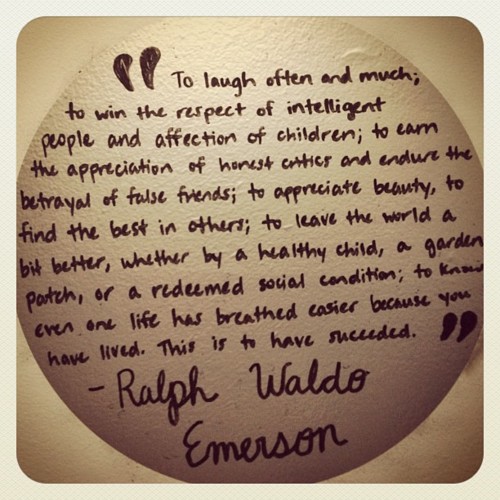 " To laugh often and much;
to win the respect of intelligent
people and affection of children; to earn
the appreciation of honest critics and endure the
betrayal of false friends; to appreciate beauty, to
find the best in others; to leave the world a
bit better, whether by a healthy child, a garden
patch, or a redeemed social condition; to know
even one life has breathed easier because you
have lived. This is to have succeeded. "
- Ralph Waldo
Emerson